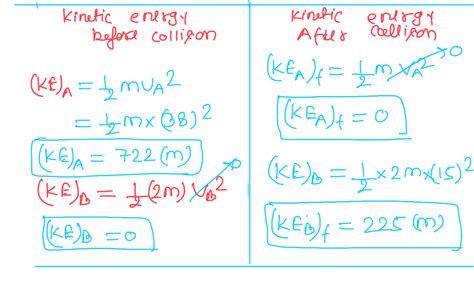 Kinetic energy
before collision
(KE)A = 1/2 m uA²
= 1/2 m × (38)²
(KE)A = 722 (m)
(KE)B = 1/2 (2m) uB² 0
(KE)B = 0
Kinetic energy
After collision
(KEA)f = 1/2 m vA² 0
(KEA)f = 0
(KE)B = 1/2 × 2m × (15)²
(KEB)f = 225 (m)